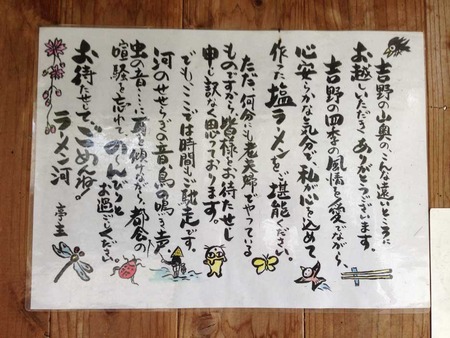 吉野の山奥の、こんな遠いところに
お越しいただきありがとうございます。
吉野の四季の風情を愛でながら、
心安らかな気分で、私が心を込めて
作った塩ラーメンをご堪能ください。
ただ、何分にも老夫婦でやっている
ものですから皆様をお待たせし
申し訳なく思っております。
でも、ここでは時間もご馳走です。
河のせせらぎの音、鳥の鳴く声
虫の音……耳を傾けながら、都会の
喧騒を忘れて、のんびりと
お過ごしください。
お待たせして、ごめんね。
ラーメン河 亭主